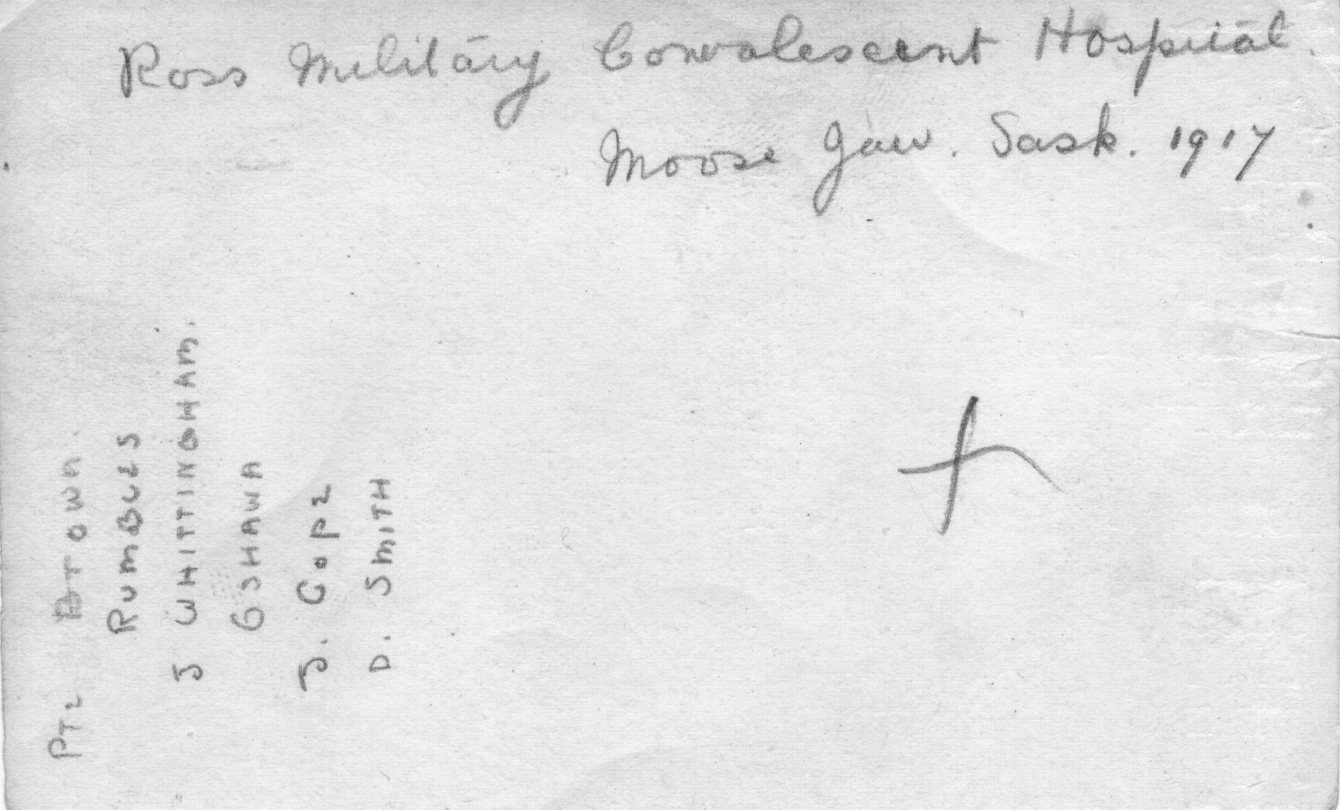 Ross Military Convalescent Hospital.
Moose Jaw. Sask. 1917
PTE
RUMBLES
J WHITTINGHAM.
OSHAWA
J. COPE
D. SMITH